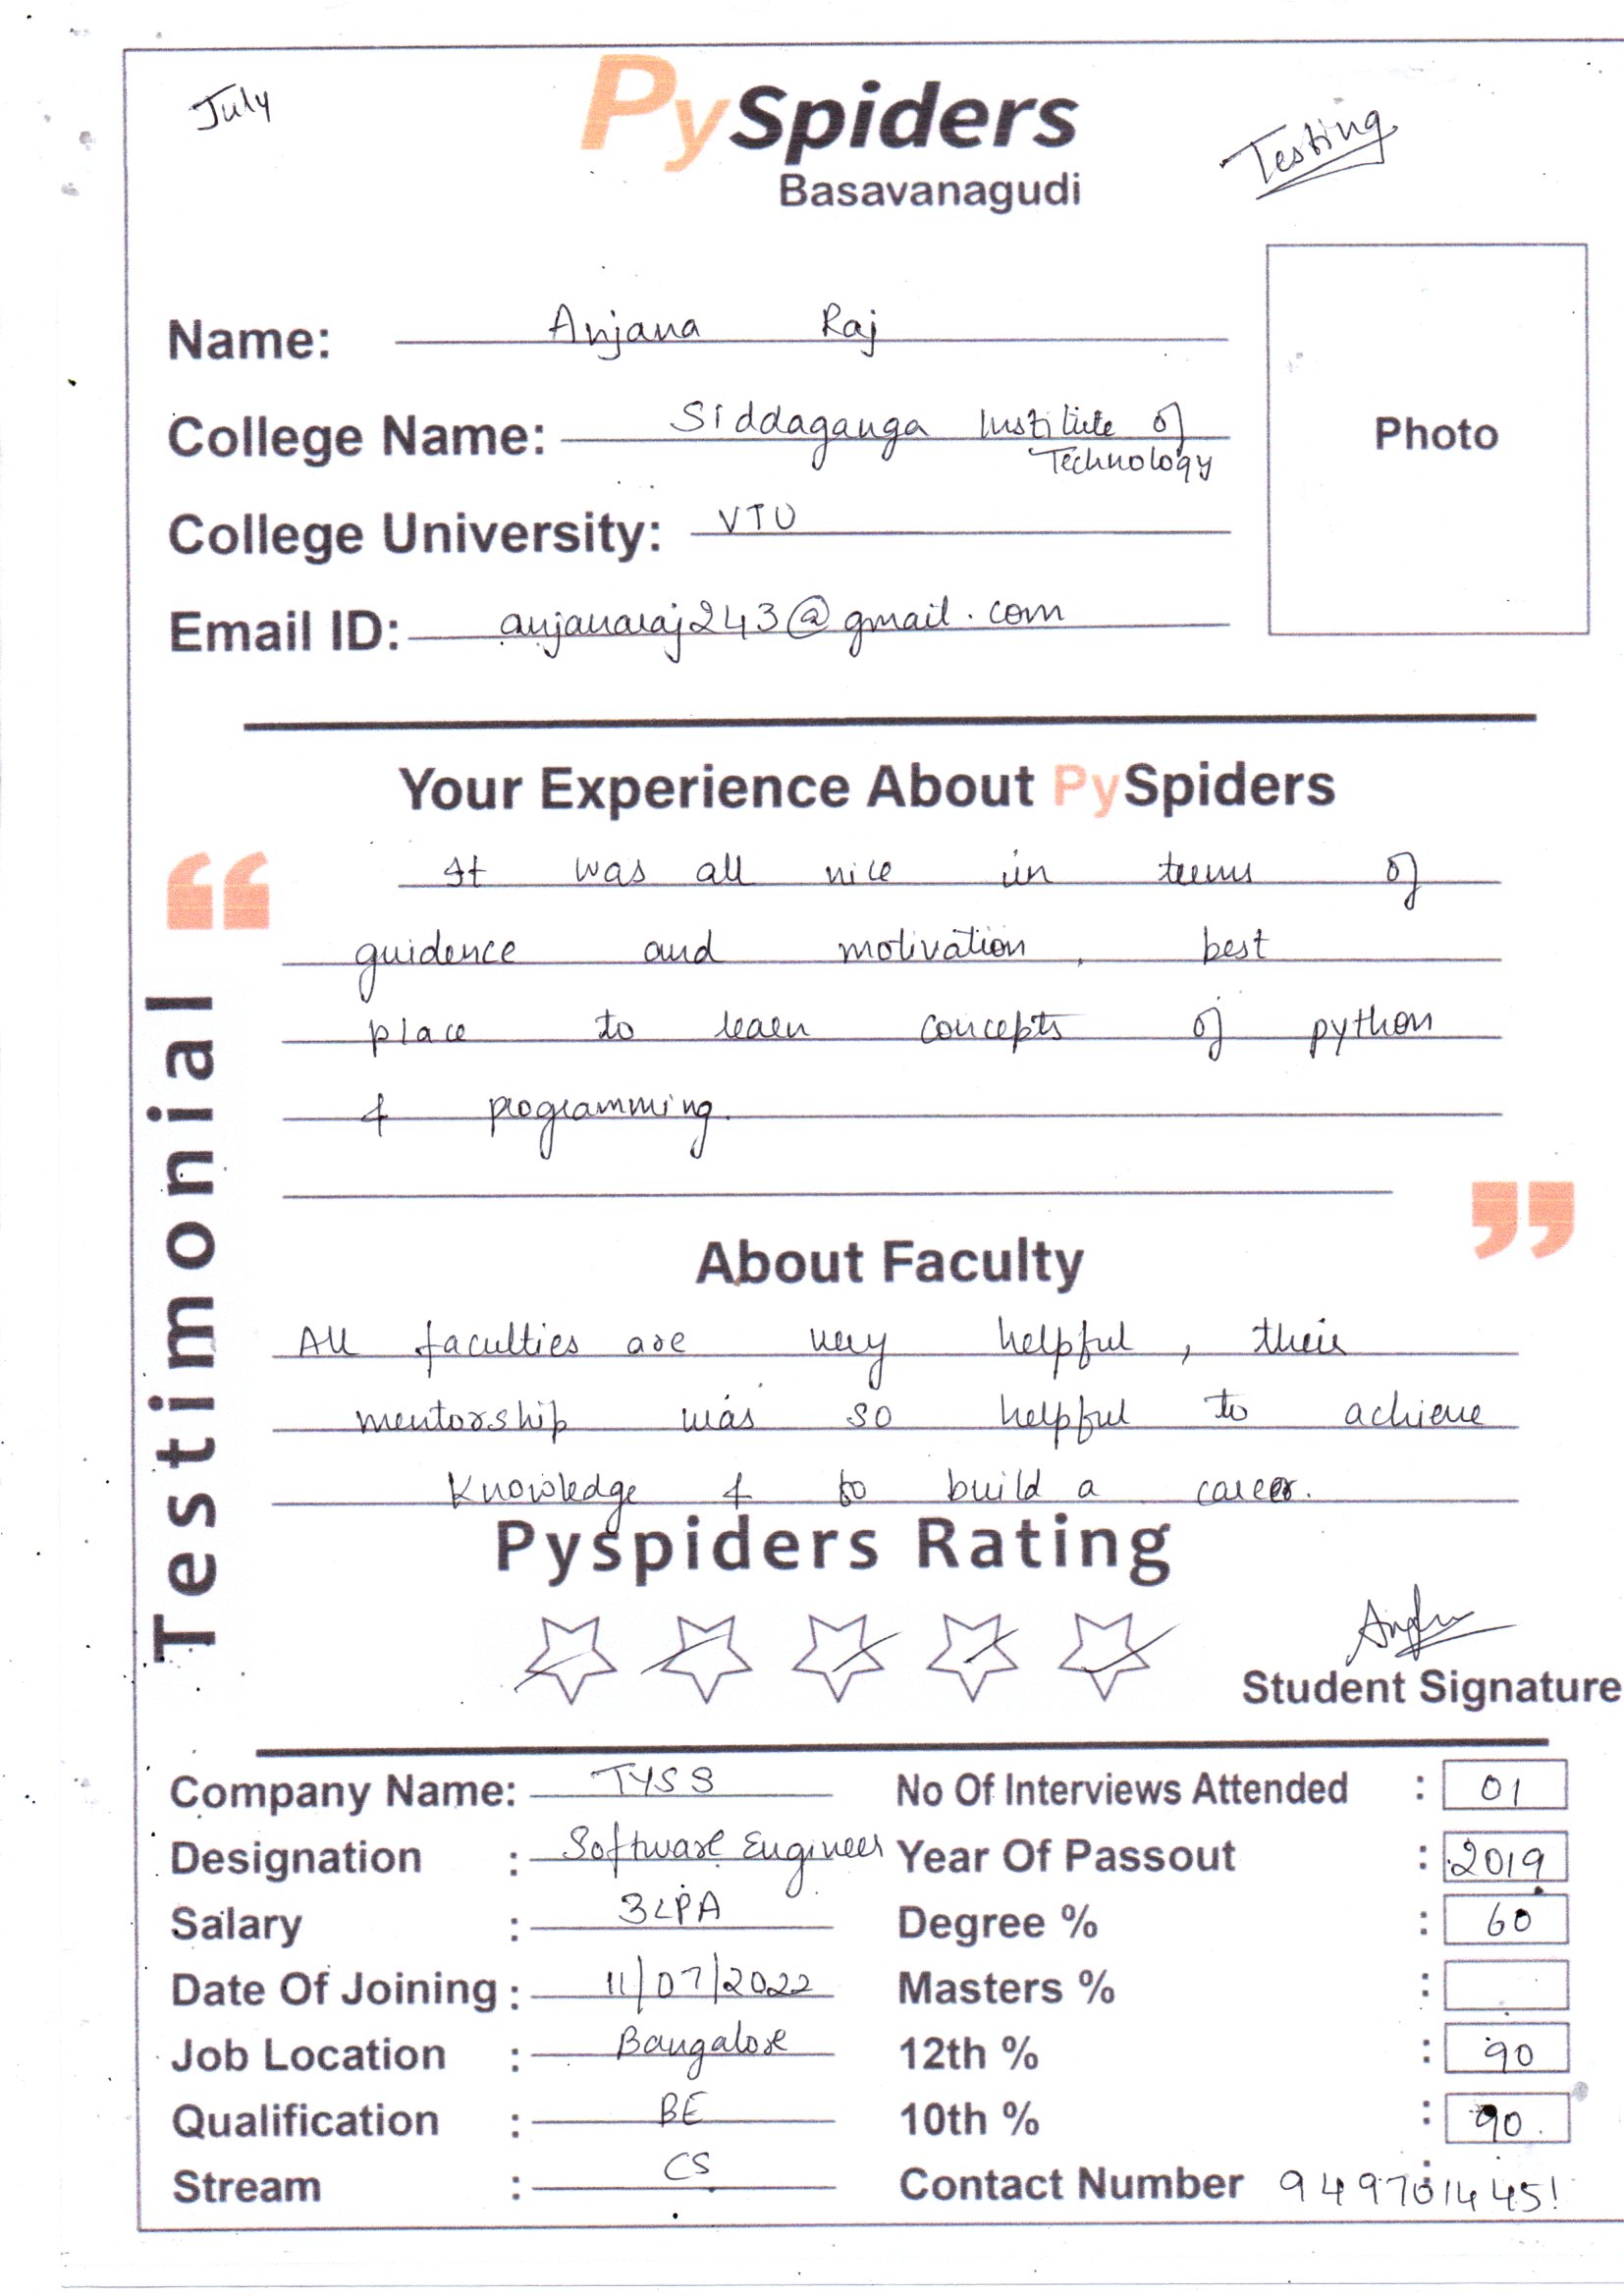 July
PySpiders
Testing
Basavanagudi
Name: Anjana Raj
Photo
College Name: Siddaganga Institute of
Technology
College University: VTU
Email ID: anjanaraj243@gmail.com
Your Experience About PySpiders
It was all nice in terms of
guidence and motivation, best
place to learn concepts of python
& programming.
Testimonial
About Faculty
All faculties are very helpful, their
mentorship was so helpful to achieve
Knowledge & to build a career.
Pyspiders Rating
Student Signature
Company Name: TYSS No Of Interviews Attended : 01
Designation : Software Engineer Year Of Passout : 2019
Salary : 3LPA Degree % : 60
Date Of Joining : 11/07/2022 Masters % :
Job Location : Bangalore 12th % : 90
Qualification : BE 10th % : 90.
Stream : CS Contact Number : 9497014451